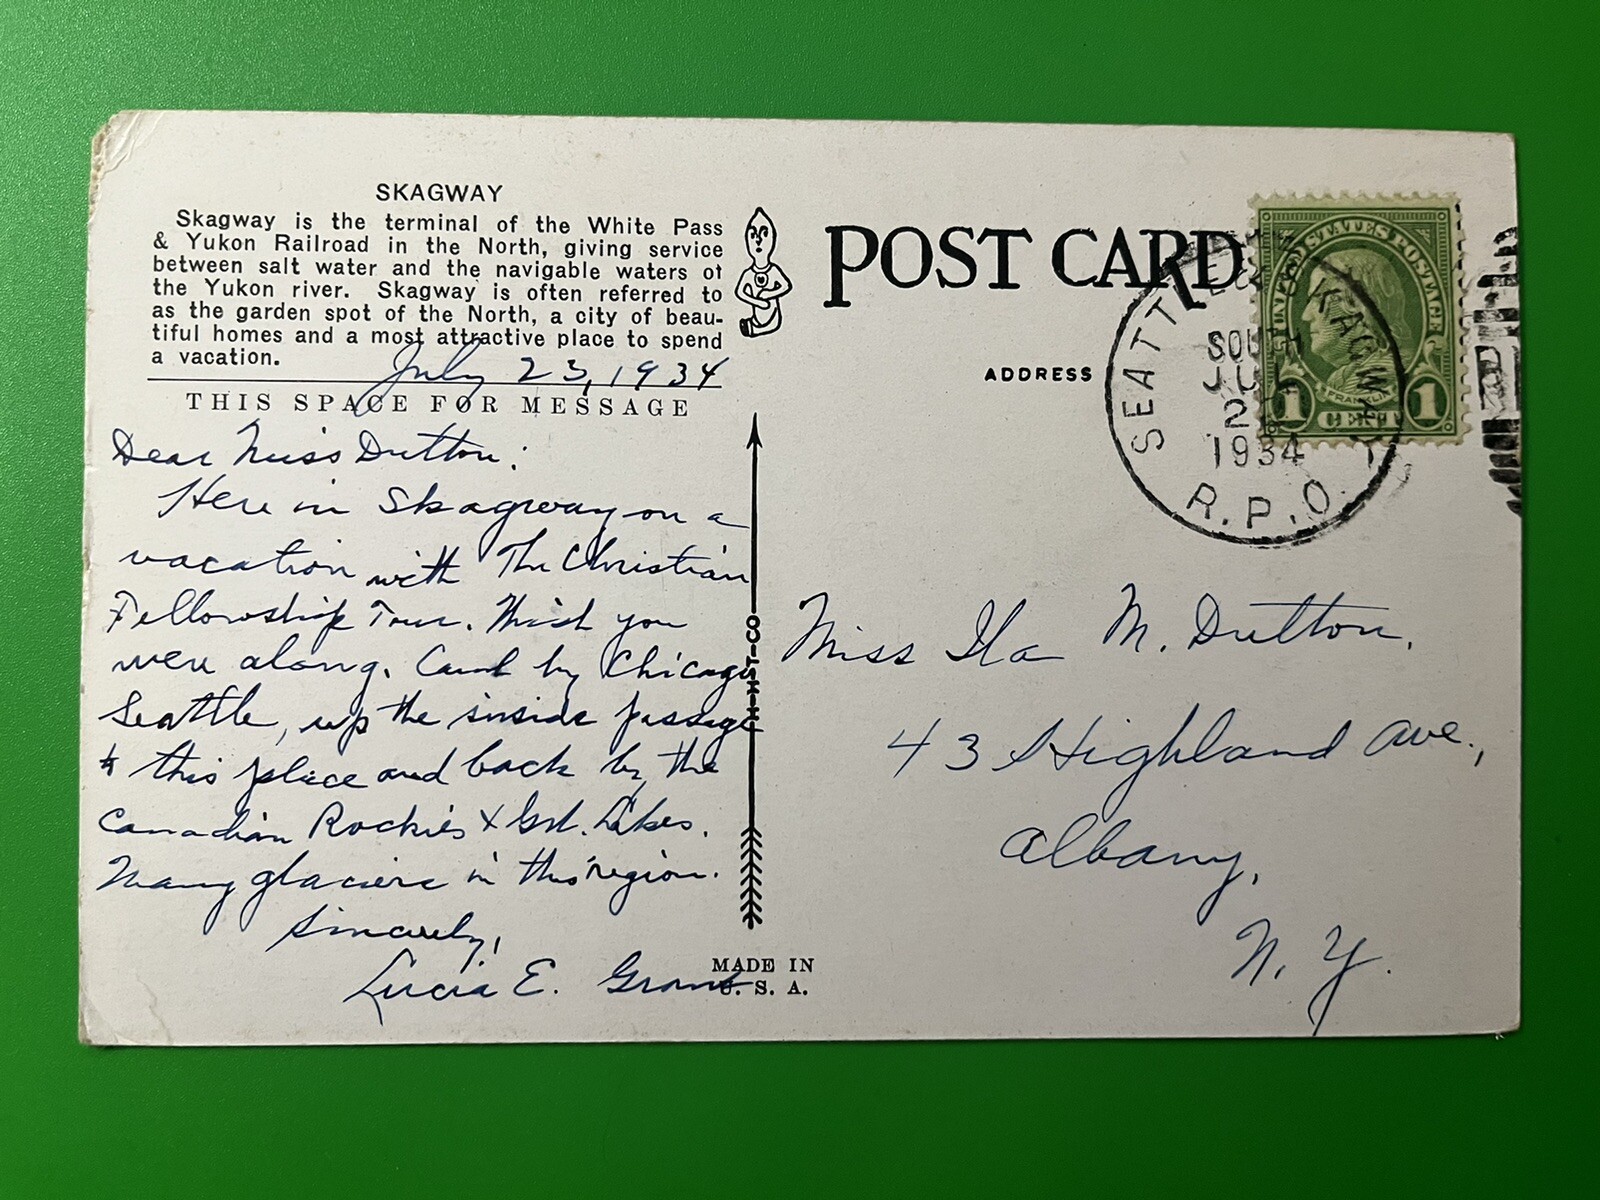 SKAGWAY
Skagway is the terminal of the White Pass
& Yukon Railroad in the North, giving service
between salt water and the navigable waters of
the Yukon river. Skagway is often referred to
as the garden spot of the North, a city of beau-
tiful homes and a most attractive place to spend
a vacation.
July 23, 1934
THIS SPACE FOR MESSAGE
Dear Miss Dutton:
Here in Skagway on a
vacation with The Christian
Fellowship Tour. Wish you
were along. Came by Chicago
Seattle, up the inside passage
to this place and back by the
Canadian Rockies & Grt. Lakes.
Many glaciers in this region.
Sincerely,
Lucia E. Grant
H-H-T-CO
MADE IN
U. S. A.
POST CARD
ADDRESS
SEATTLE & SKAGWAY
SOUTH
JUL
2
1934
R.P.O.
UNITED STATES POSTAGE
FRANKLIN
1 CENT 1
Miss Ila M. Dutton.
43 Highland Ave.,
Albany,
N. Y.